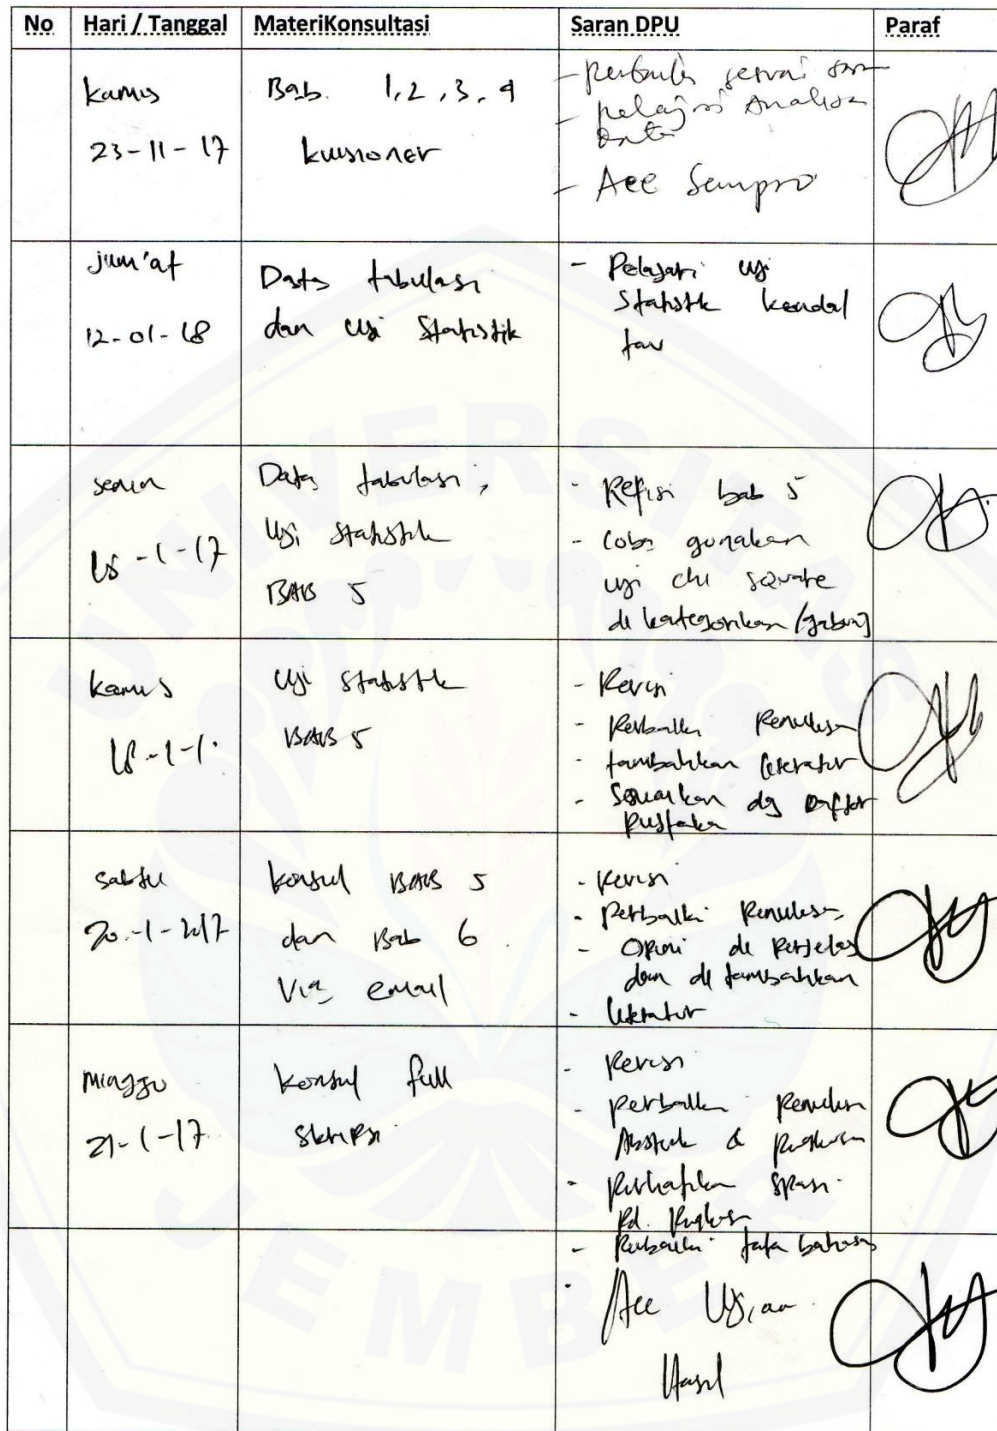 No Hari / Tanggal MateriKonsultasi Saran DPU Paraf
kamis
23-11-17
Bab. 1,2,3,4
kuisioner
- perbaiki sesuai
- pelajari Analisa
Data
- Acc Sempro
jum'at
12-01-18
Data tabulasi
dan uji Statistik
- Pelajari uji
Statistik kendal
tau
senin
15-1-17
Data tabulasi,
Uji statistik
BAB 5
- Refisi bab 5
- Coba gunakan
uji chi square
di kategorikan /gabung
kamis
18-1-1
Uji statistik
BAB 5
- Revisi
- Perbaiki Penulisan
- tambahkan literatur
- Sesuaikan dg Daftar
Pustaka
sabtu
20-1-2017
konsul BAB 5
dan Bab 6
Via email
- Revisi
- Perbaiki Penulisan
- Opini di Perjelas
dan di tambahkan
- literatur
minggu
21-1-17
konsul full
skripsi
- Revisi
- perbaiki Penulisan
Abstrak & Ringkasan
- Perhatikan Spasi
Pd. Ringkasan
- Perbaiki tata bahasa
- Acc Ujian
Hasil
UNIVERSITAS
JEMBER